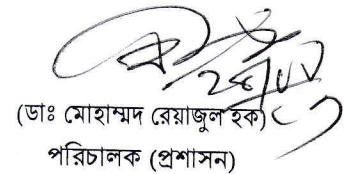 (ডাঃ মোহাম্মদ রেয়াজুল হক)
পরিচালক (প্রশাসন)